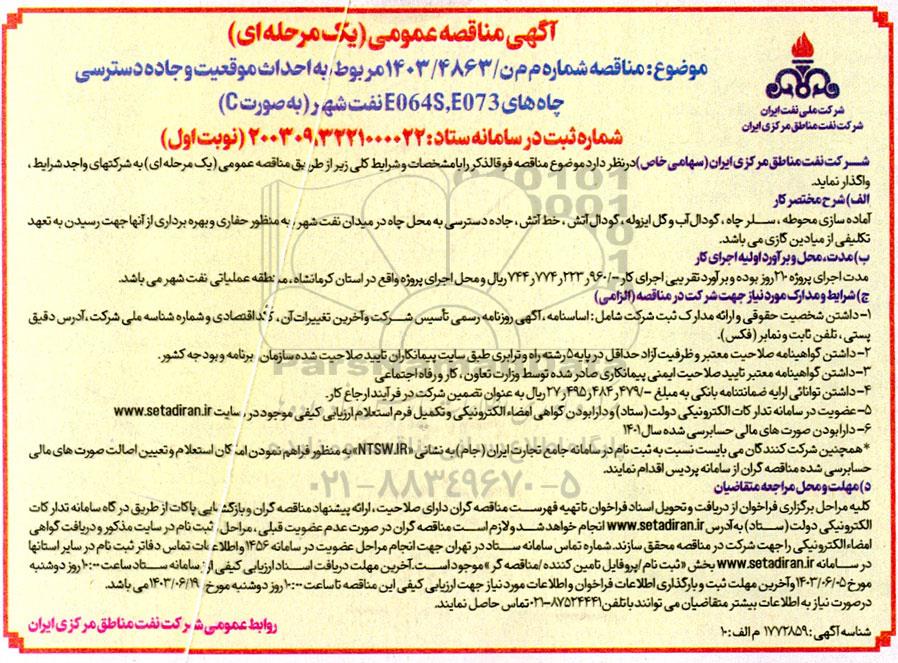 آگهی مناقصه عمومی (یک مرحله ای)
موضوع: مناقصه شماره م م ن/۱۴۰۳/۴۸۶۳ مربوط به احداث موقعیت و جاده دسترسی
چاه های E064S,E073 نفت شهر (به صورت C)
شماره ثبت در سامانه ستاد: ۲۰۰۳۰۹٫۳۲۲۱۰۰۰۰۲۲ (نوبت اول)
شرکت ملی نفت ایران
شرکت نفت مناطق مرکزی ایران
شرکت نفت مناطق مرکزی ایران (سهامی خاص) در نظر دارد موضوع مناقصه فوق الذکر را با مشخصات و شرایط کلی زیر از طریق مناقصه عمومی (یک مرحله ای) به شرکتهای واجد شرایط،
واگذار نماید.
الف) شرح مختصر کار
آماده سازی محوطه، سلر چاه، گودال آب و گل ایزوله، گودال آتش، خط آتش، جاده دسترسی به محل چاه در میدان نفت شهر به منظور حفاری و بهره برداری از آنها جهت رسیدن به تعهد
تکلیفی از میادین گازی می باشد.
ب) مدت، محل و برآورد اولیه اجرای کار
مدت اجرای پروژه ۲۱۰ روز بوده و برآورد تقریبی اجرای کار -/۹۶۰ر۲۲۳ر۷۷۴ر۷۴۴ ریال و محل اجرای پروژه واقع در استان کرمانشاه، منطقه عملیاتی نفت شهر می باشد.
ج) شرایط و مدارک مورد نیاز جهت شرکت در مناقصه (الزامی)
۱- داشتن شخصیت حقوقی و ارائه مدارک ثبت شرکت شامل: اساسنامه، آگهی روزنامه رسمی تأسیس شرکت و آخرین تغییرات آن، کد اقتصادی و شماره شناسه ملی شرکت، آدرس دقیق
پستی، تلفن ثابت و نمابر (فکس).
۲- داشتن گواهینامه صلاحیت معتبر و ظرفیت آزاد حداقل در پایه ۵ رشته راه و ترابری طبق سایت پیمانکاران تایید صلاحیت شده سازمان برنامه و بودجه کشور.
۳- داشتن گواهینامه معتبر تایید صلاحیت ایمنی پیمانکاری صادر شده توسط وزارت تعاون، کار و رفاه اجتماعی
۴- داشتن توانائی ارایه ضمانتنامه بانکی به مبلغ -/۴۷۹ر۴۸۴ر۴۹۵ر۲۷ ریال به عنوان تضمین شرکت در فرآیند ارجاع کار.
۵- عضویت در سامانه تدارکات الکترونیکی دولت (ستاد) و دارا بودن گواهی امضاء الکترونیکی و تکمیل فرم استعلام ارزیابی کیفی موجود در سایت www.setadiran.ir
۶- دارا بودن صورت های مالی حسابرسی شده سال ۱۴۰۱
*همچنین شرکت کنندگان می بایست نسبت به ثبت نام در سامانه جامع تجارت ایران (جام) به نشانی «NTSW.IR» به منظور فراهم نمودن امکان استعلام و تعیین اصالت صورت های مالی
حسابرسی شده مناقصه گران از سامانه پردیس اقدام نمایند.
د) مهلت و محل مراجعه متقاضیان
کلیه مراحل برگزاری فراخوان از دریافت و تحویل اسناد فراخوان تا تهیه فهرست مناقصه گران دارای صلاحیت، ارائه پیشنهاد مناقصه گران و بازگشایی پاکات از طریق درگاه سامانه تدارکات
الکترونیکی دولت (ستاد) به آدرس www.setadiran.ir انجام خواهد شد و لازم است مناقصه گران در صورت عدم عضویت قبلی، مراحل ثبت نام در سایت مذکور و دریافت گواهی
امضاء الکترونیکی را جهت شرکت در مناقصه محقق سازند. شماره تماس سامانه ستاد در تهران جهت انجام مراحل عضویت در سامانه ۱۴۵۶ و اطلاعات تماس دفاتر ثبت نام در سایر استانها
در سامانه www.setadiran.ir بخش «ثبت نام/پروفایل تامین کننده/مناقصه گر» موجود است. آخرین مهلت دریافت اسناد ارزیابی کیفی از سامانه ستاد ساعت ۱۰:۰۰ روز دوشنبه
مورخ ۱۴۰۳/۰۶/۰۵ و آخرین مهلت ثبت و بارگذاری اطلاعات فراخوان و اطلاعات مورد نیاز جهت ارزیابی کیفی این مناقصه تا ساعت ۱۰:۰۰ روز دوشنبه مورخ ۱۴۰۳/۰۶/۱۹ می باشد.
در صورت نیاز به اطلاعات بیشتر متقاضیان می توانند با تلفن ۸۷۵۲۴۴۴۱-۰۲۱ تماس حاصل نمایند.
شناسه آگهی: ۱۷۷۲۸۵۹ م الف: ۱۰
روابط عمومی شرکت نفت مناطق مرکزی ایران
۰۲۱-۸۸۳۴۹۶۷۰-۵